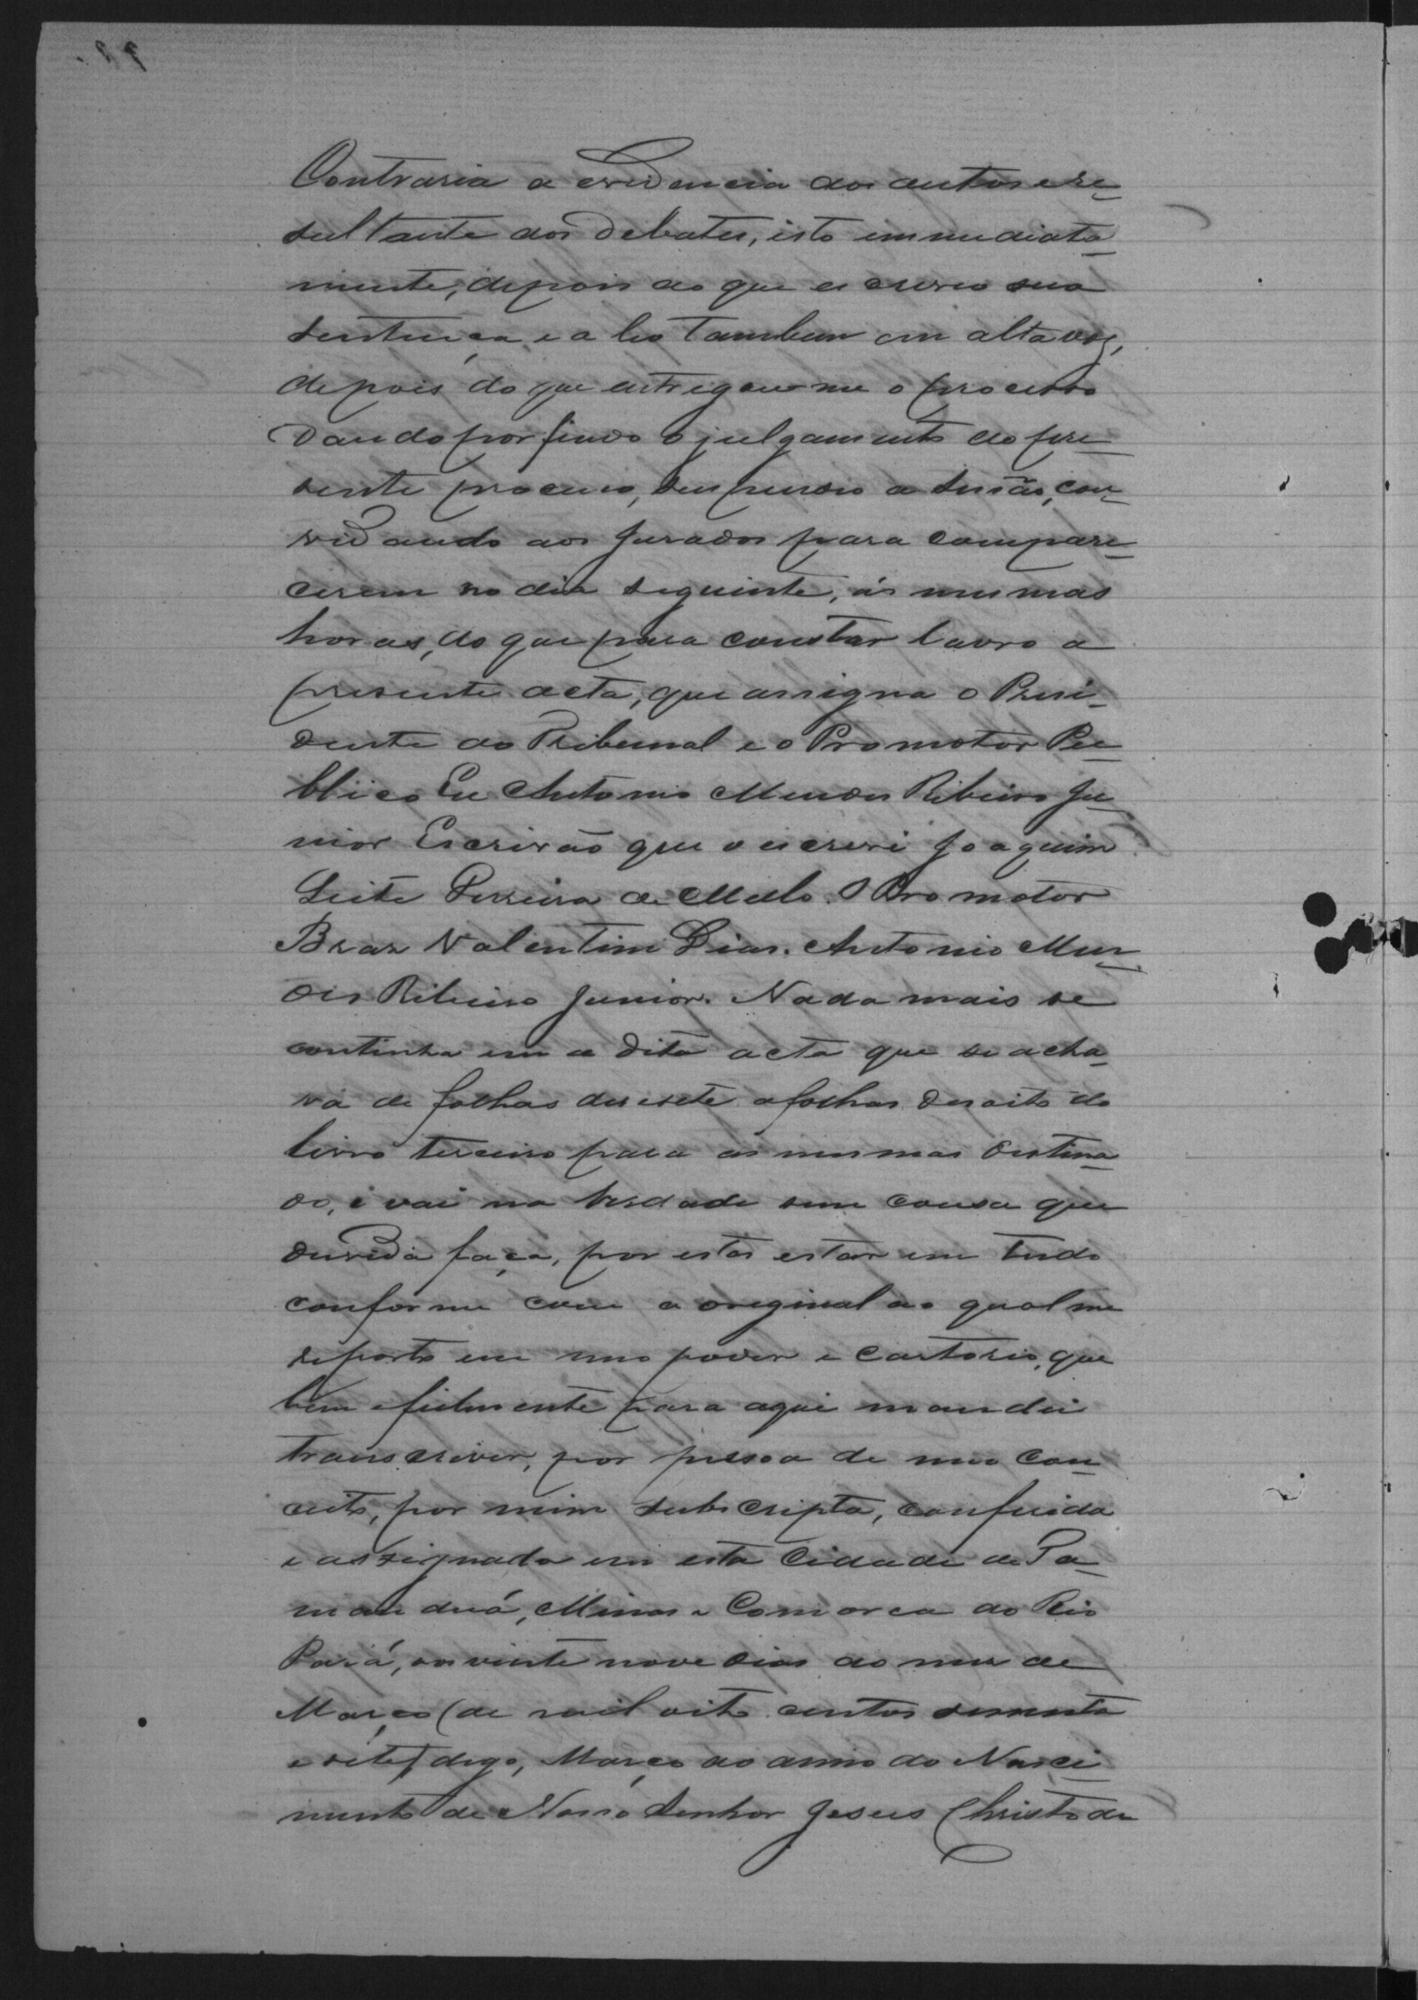 Contraria a evidencia dos autos e re-
sultante dos debates, isto immediata-
mente, depois do que escreveo sua
sentença, e a leo tambem em alta voz,
depois do que entregou-me o processo
Dando por findo o julgamento do pre-
sente processo, suspendeo a sessão, con-
vidando aos Jurados para compare-
cerem no dia seguinte, ás mesmas
horas, do que para constar lavro a
presente acta, que assigna o Presi-
dente do Tribunal e o Promotor Pu-
blico Eu Antonio Mendes Ribeiro Ju-
nior Escrivão que o escrevi Joaquim
Leite Ferreira de Mello. O Promotor
Braz Valentim Dias. Antonio Men-
des Ribeiro Junior. Nada mais se
continha em a dita acta que se acha-
va de folhas desesete a folhas desoito do
livro terceiro para as mesmas destina-
do, e vai na verdade sem cousa que
duvida faça, por esta estar em tudo
conforme com a original ao qual me
reporto em meo poder e cartorio, que
bem e fielmente para aqui mandei
transcriver, por pessoa de meo con-
ceito, por mim subscripta, conferida
e assignada em esta Cidade de Ta-
manduá, Minas e Comarca do Rio
Pará, aos vinte nove dias do mez de
Março (de mil oito centos sessenta
e sete) digo, Março do anno do Nasci-
mento de Nosso Senhor Jesus Christo de